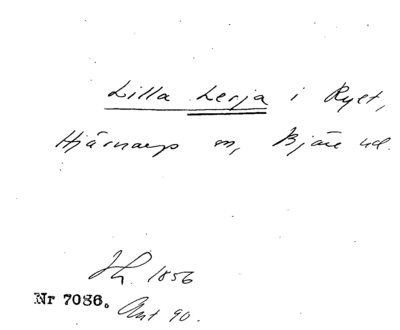 Lilla Lerja i Ryet,
Hjärnarps sn, Bjäre hd.
Jb. 1856
Nr 7086. Ant 90.